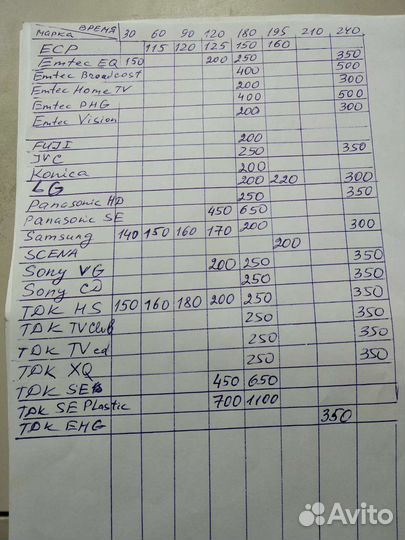 МАРКА ВРЕМЯ 30 60 90 120 180 195 210 240
ECP 115 120 125 150 160
Emtec EQ 150 200 250 350
Emtec Broadcast 400 500
Emtec Home TV 200 300
Emtec PHG 400 500
Emtec Vision 200 300
FUJI 200
JVC 250 350
Konica 200
LG 200 220 300
Panasonic HD 250 350
Panasonic SE 450 650
Samsung 140 150 160 170 200 300
SCENA 200
Sony VG 200 250 350
Sony CD 250 350
TDK HS 150 160 180 200 250 350
TDK TV Club 250 350
TDK TV ed 250 350
TDK XQ 250 350
TDK SE 450 650
TDK SE Plastic 700 1100
TDK EHG 350
Avito